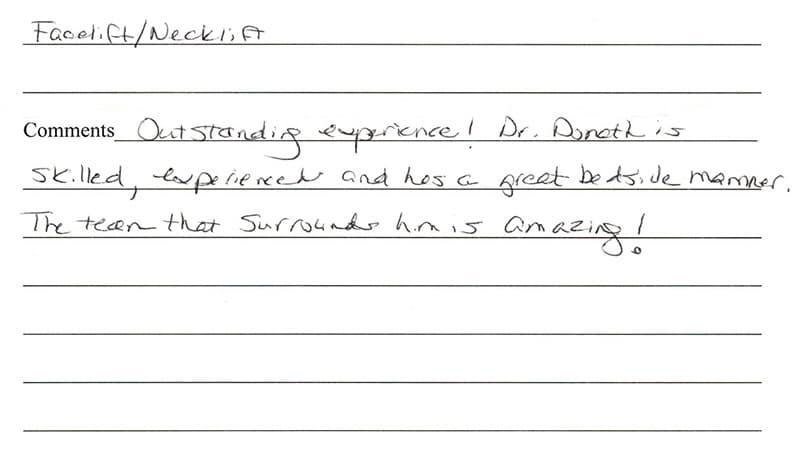 Facelift/Necklift
Comments Outstanding experience! Dr. Donath is
skilled, experienced and has a great bedside manner.
The team that surrounds him is amazing!